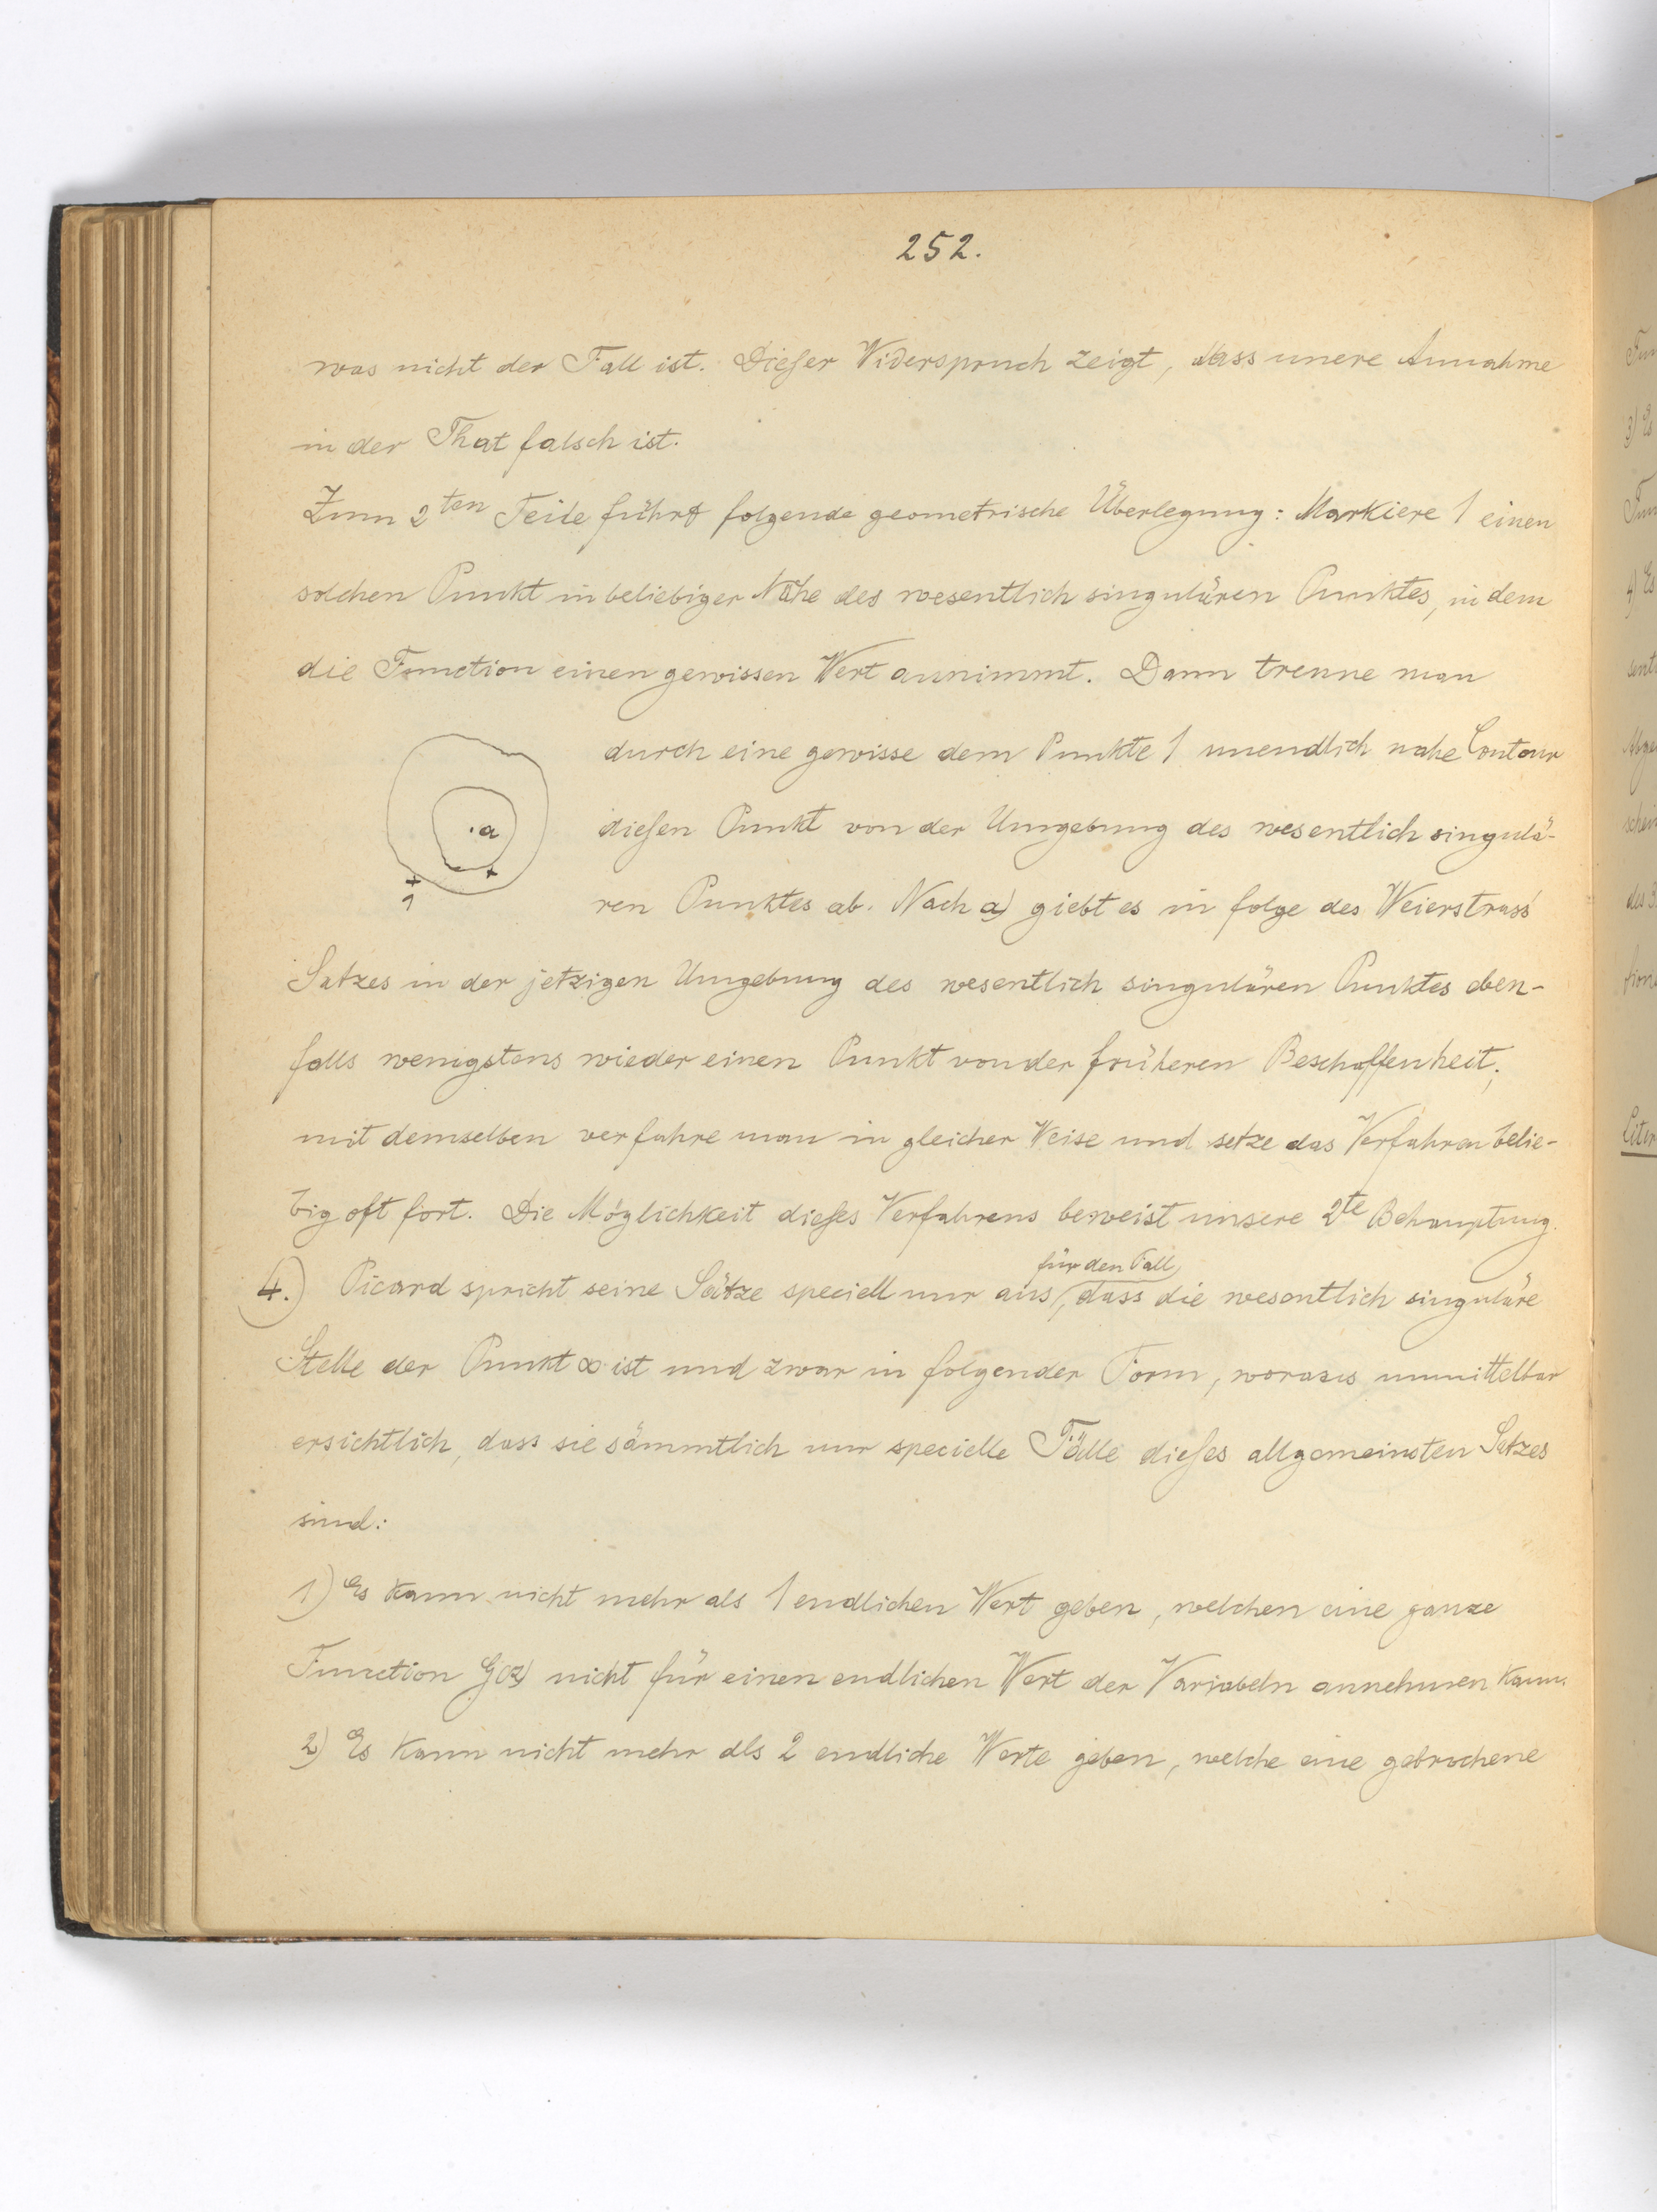 252.
was nicht der Fall ist. Dieser Widerspruch zeigt, dass unere Annahme
in der That falsch ist.
Zum 2ten Teile führt folgende geometrische Überlegung: Markiere 1 einen
solchen Punkt in beliebiger Nähe des wesentlich singulären Punktes, in dem
die Function einen gewissen Wert annimmt. Dann trenne man
durch eine gewisse dem Punkte 1 unendlich nahe Contour
diesen Punkt von der Umgebung des wesentlich singulä-
ren Punktes ab. Nach a) giebt es in folge des Weierstrass'
Satzes in der jetzigen Umgebung des wesentlich singulären Punktes eben-
falls wenigstens wieder einen Punkt von der früheren Beschaffenheit;
mit demselben verfahre man in gleicher Weise und setze das Verfahren belie-
big oft fort. Die Möglichkeit dieses Verfahrens beweist unsere 2te Behauptung.
für den Fall
4.) Picard spricht seine Sätze speciell nur aus, dass die wesentlich singuläre
Stelle der Punkt ∞ ist und zwar in folgender Form, woraus unmittelbar
ersichtlich, dass sie sämmtlich nur specielle Fälle dieses allgemeinsten Satzes
sind:
1) Es kann nicht mehr als 1 endlichen Wert geben, welchen eine ganze
Function G(z) nicht für einen endlichen Wert der Variabeln annehmen kann.
2) Es kann nicht mehr als 2 endliche Werte geben, welche eine gebrochene
a
1